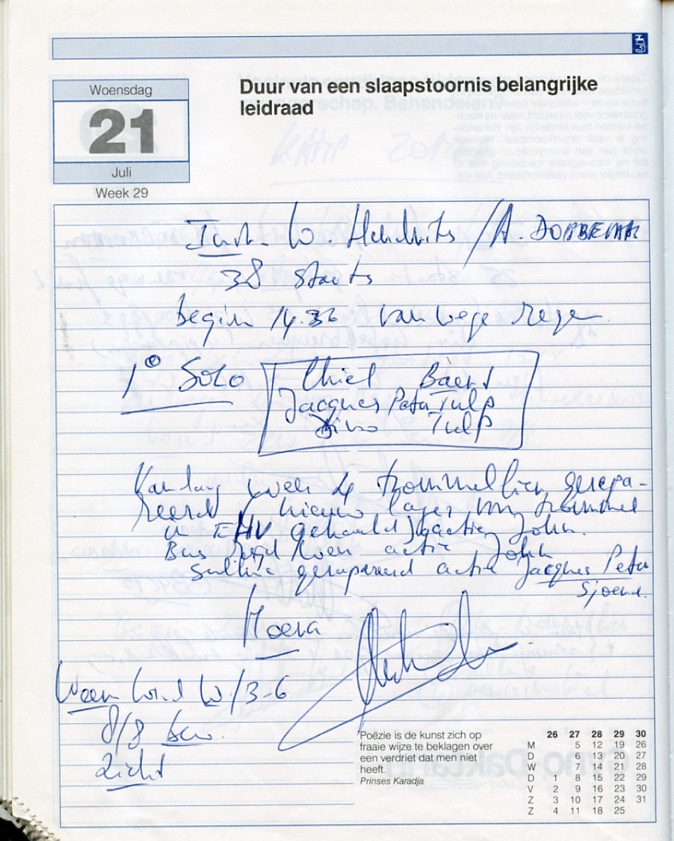 Woensdag
21
Juli
Week 29
Duur van een slaapstoornis belangrijke
leidraad
Instr. W. / A. DOBBELAAR
38 starts
begin 14.36 vanwege regen
1e Solo
Chiel Baert
Jacques Peter Tulp
Dino Tulp
Vandaag weer 4 trommellier gerepa-
reerd / nieuw lager trommel
in EHV gehaald / actie John.
Bus actie John
gerepareerd actie Jacques Peter
Sjoerd.
Hoera
Weer Wind W/3-6
8/8 bew.
Zicht
Poëzie is de kunst zich op
fraaie wijze te beklagen over
een verdriet dat men niet
heeft.
Prinses Karadja
26 27 28 29 30
M 5 12 19 26
D 6 13 20 27
W 7 14 21 28
D 1 8 15 22 29
V 2 9 16 23 30
Z 3 10 17 24 31
Z 4 11 18 25